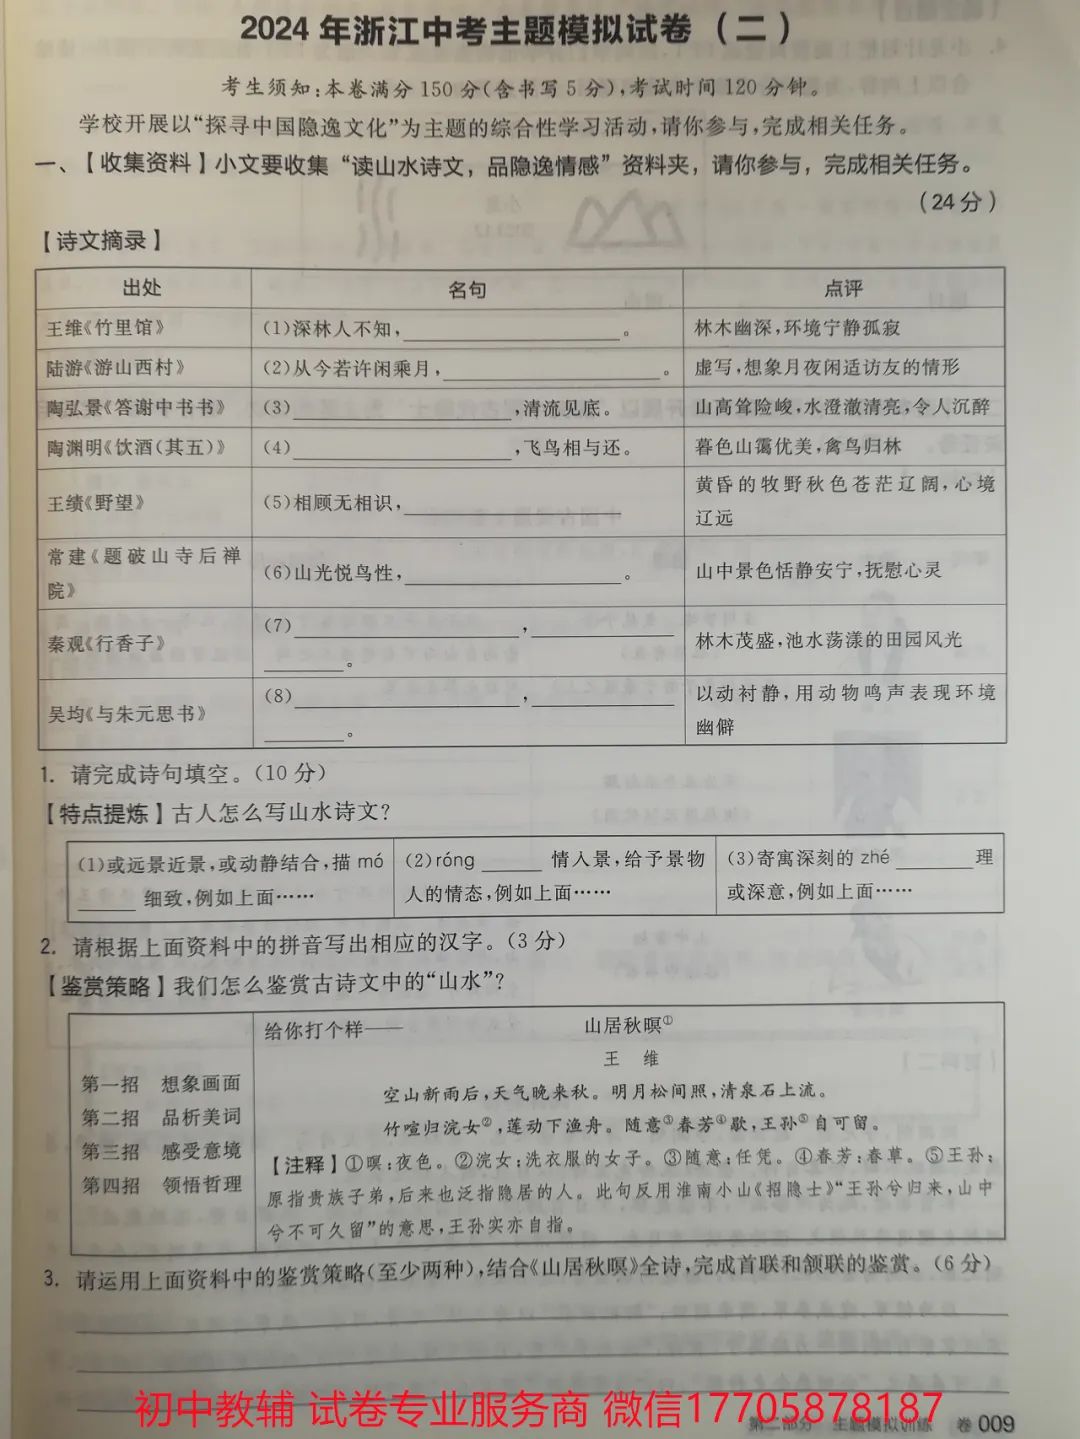 2024年浙江中考主题模拟试卷（二）
考生须知：本卷满分150分（含书写5分），考试时间120分钟。
学校开展以“探寻中国隐逸文化”为主题的综合性学习活动，请你参与，完成相关任务。
一、【收集资料】小文要收集“读山水诗文，品隐逸情感”资料夹，请你参与，完成相关任务。
（24分）
【诗文摘录】
出处 名句 点评
王维《竹里馆》 （1）深林人不知，____。 林木幽深，环境宁静孤寂
陆游《游山西村》 （2）从今若许闲乘月，____。 虚写，想象月夜闲适访友的情形
陶弘景《答谢中书书》 （3）____，清流见底。 山高耸险峻，水澄澈清亮，令人沉醉
陶渊明《饮酒（其五）》 （4）____，飞鸟相与还。 暮色山霭优美，禽鸟归林
王绩《野望》 （5）相顾无相识，____ 黄昏的牧野秋色苍茫辽阔，心境
辽远
常建《题破山寺后禅
院》 （6）山光悦鸟性，____。 山中景色恬静安宁，抚慰心灵
秦观《行香子》 （7）____，____
____。 林木茂盛，池水荡漾的田园风光
吴均《与朱元思书》 （8）____，____
____。 以动衬静，用动物鸣声表现环境
幽僻
1. 请完成诗句填空。（10分）
【特点提炼】古人怎么写山水诗文？
（1）或远景近景，或动静结合，描mó
____细致，例如上面……
（2）róng ____ 情入景，给予景物
人的情态，例如上面……
（3）寄寓深刻的zhé ____理
或深意，例如上面……
2. 请根据上面资料中的拼音写出相应的汉字。（3分）
【鉴赏策略】我们怎么鉴赏古诗文中的“山水”？
第一招 想象画面
第二招 品析美词
第三招 感受意境
第四招 领悟哲理
给你打个样—— 山居秋暝①
王 维
空山新雨后，天气晚来秋。明月松间照，清泉石上流。
竹喧归浣女②，莲动下渔舟。随意③春芳④歇，王孙⑤自可留。
【注释】①暝：夜色。②浣女：洗衣服的女子。③随意：任凭。④春芳：春草。⑤王孙：
原指贵族子弟，后来也泛指隐居的人。此句反用淮南小山《招隐士》“王孙兮归来，山中
兮不可久留”的意思，王孙实亦自指。
3. 请运用上面资料中的鉴赏策略（至少两种），结合《山居秋暝》全诗，完成首联和颔联的鉴赏。（6分）
初中教辅 试卷专业服务商 微信17705878187
第二部分 主题模拟训练 卷 009